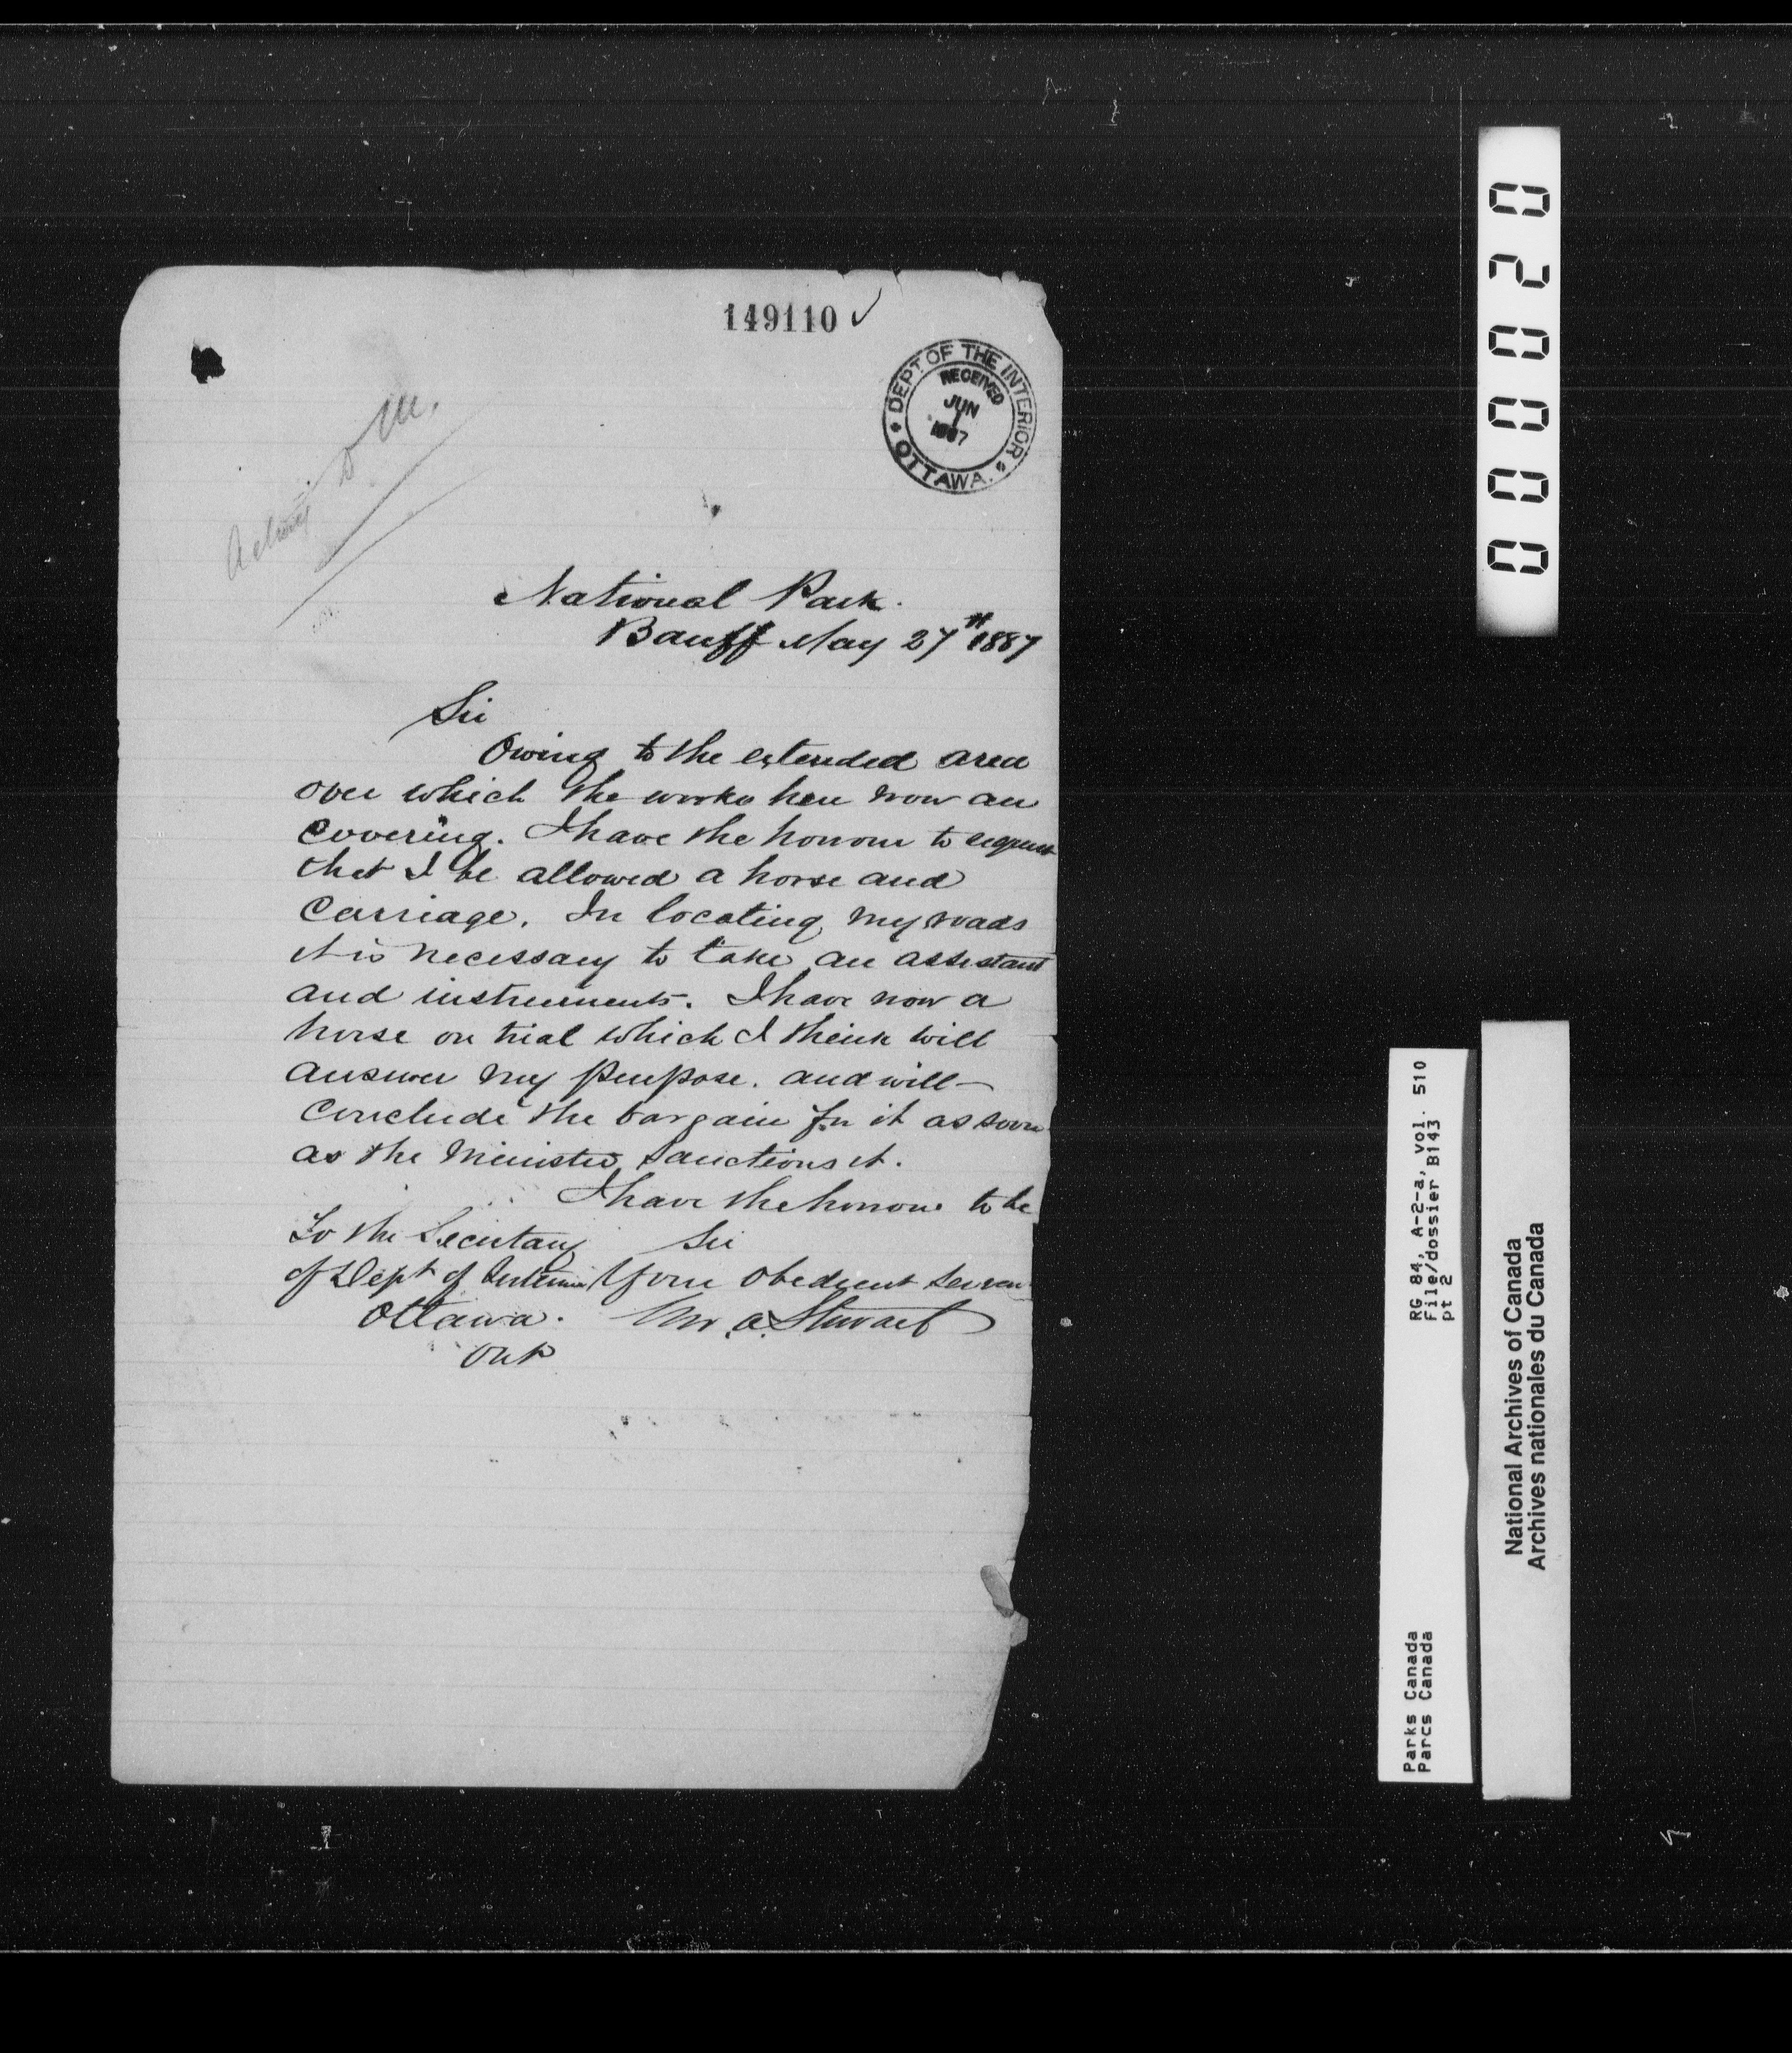 149110 ✓
DEPT. OF THE INTERIOR
RECEIVED
JUN
1887
OTTAWA.
National Park.
Banff May 27th 1887
Sir
Owing to the extended area
over which the works here now are
covering. I have the honour to request
that I be allowed a horse and
Carriage. In locating my roads
it is necessary to take an assistant
and instruments. I have now a
horse on trial which I think will
answer my purpose. and will
conclude the bargain for it as soon
as the Minister sanctions it.
I have the honour to be
To the Secretary Sir
of Dept of Interior Your obedient servan
Ottawa. Wm. A. Stewart
Ont
000020
RG 84, A-2-a, vol. 510
File/dossier B143
pt 2
Parks Canada
Parcs Canada
National Archives of Canada
Archives nationales du Canada